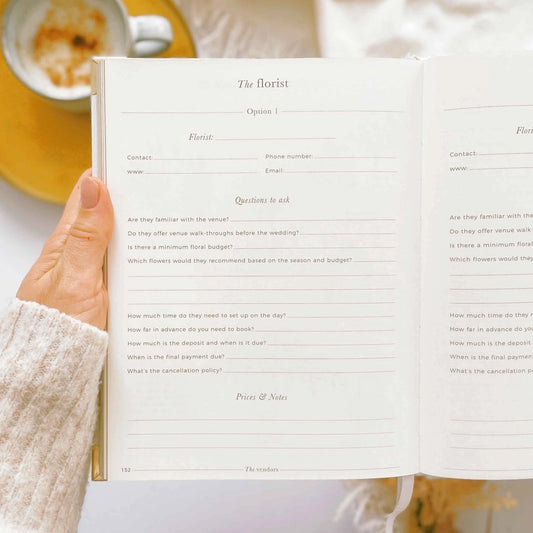 The florist
Option 1
Florist:
Contact: Phone number:
www: Email:
Questions to ask
Are they familiar with the venue?
Do they offer venue walk-throughs before the wedding?
Is there a minimum floral budget?
Which flowers would they recommend based on the season and budget?
How much time do they need to set up on the day?
How far in advance do you need to book?
How much is the deposit and when is it due?
When is the final payment due?
What's the cancellation policy?
Prices & Notes
152 The vendors
Floris
Contact:
www:
Are they familiar with the
Do they offer venue walk
Is there a minimum floral
Which flowers would they
How much time do they n
How far in advance do yo
How much is the deposit
When is the final payment
What's the cancellation po